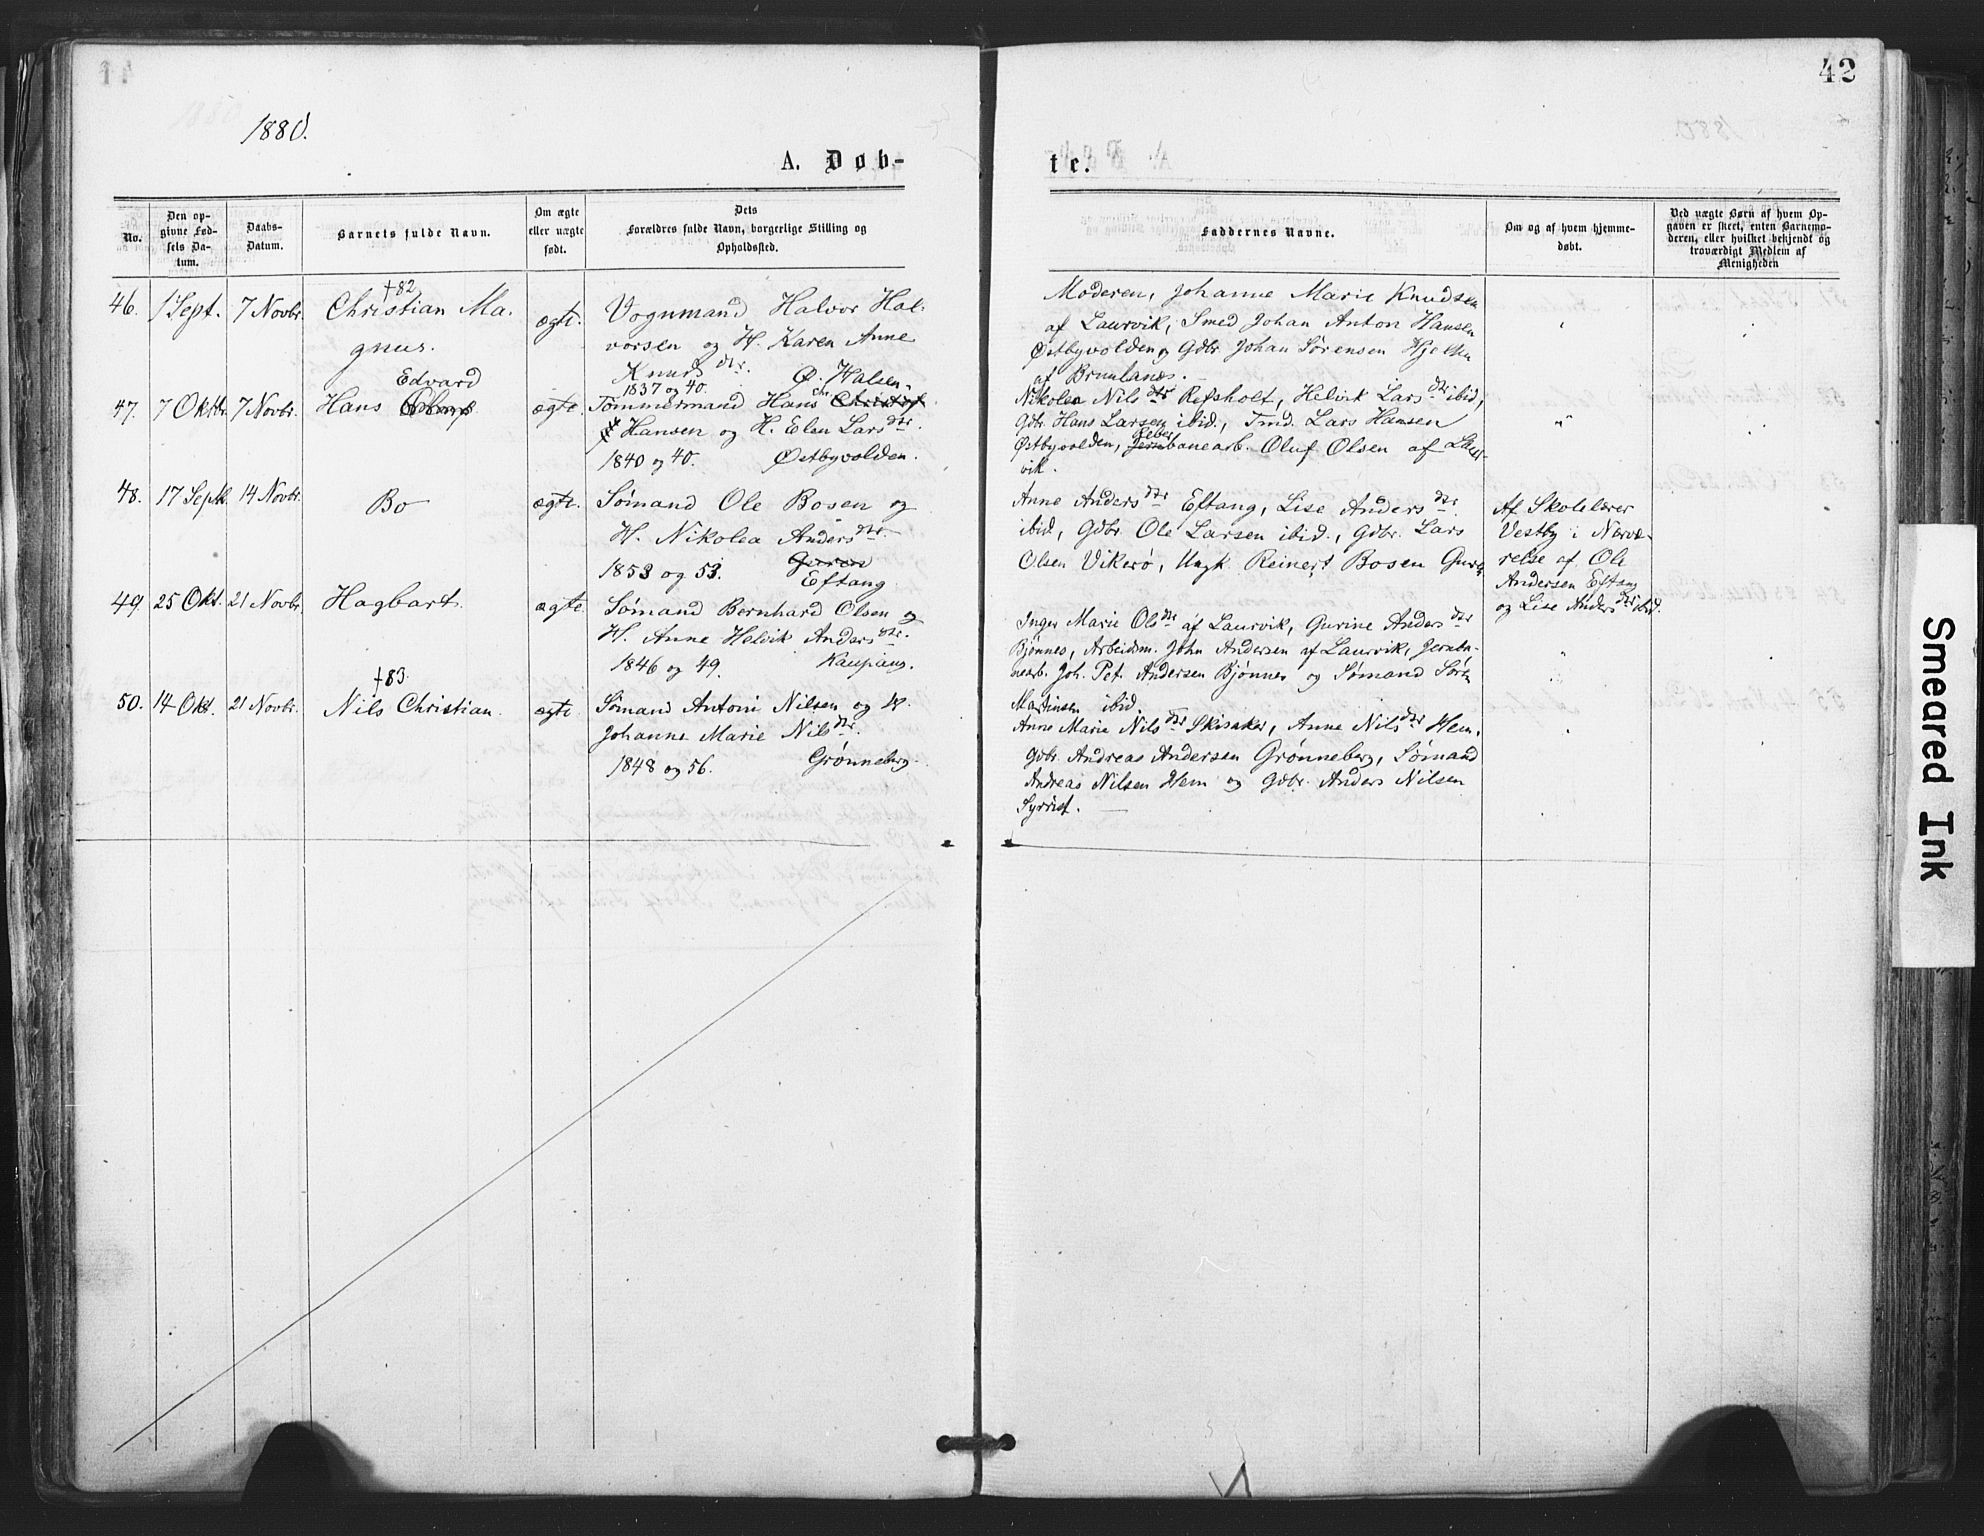 42
1880.
A. Døb-
te.
No.
Den op-
givne Fød-
sels Da-
tum.
Daabs-
Datum.
Barnets fulde Navn.
Om ægte
eller uægte
født.
Dets
Forældres fulde Navn, borgerlige Stilling og
Opholdssted.
Faddernes Navne.
Om og af hvem hjemme-
døbt.
Ved uægte Børn af hvem Op-
gaven er skeet, enten Barnemo-
deren, eller hvilket bekjendt og
troværdigt Medlem af
Menigheden
46. 1 Sept. 7 Novbr.
†82
Christian Ma-
gnus.
ægte.
Vognmand Halvor Hal-
vorsen og H. Karen Anne
Knuds dtr.
1837 og 40. Ø. Halsen.
Moderen, Johanne Marie Knudsen
af Laurvik, Smed Johan Anton Hansen
Østbyvolden og Gdbr. Johan Sørensen
af Brunlanæs.
47. 7 Oktbr. 7 Novbr.
Edvard
Hans
ægte.
Tømmermand Hans Chr. Christof
Hansen og H. Elen Lars dtr.
1840 og 40. Østbyvolden.
Nikolea Nils dtr Refsholt, Helvik Lars dtr ibid,
Gdbr. Hans Larsen ibid., Tmd. Lars Hansen
Østbyvolden, Reberbanearb. Oluf Olsen af Laur-
vik.
48. 17 Septbr. 14 Novbr.
Bo
ægte.
Sømand Ole Bosen og
H. Nikolea Anders dtr.
1853 og 53. Guren
Eftang
Anne Anders dtr Eftang, Lise Anders dtr
ibid, Gdbr. Ole Larsen ibid., Gdbr. Lars
Olsen Vikerø, Ungk. Reinert Bosen Guren
Af Skolelærer
Vestby i Nærvæ-
relse af Ole
Andersen Eftang
og Lise Anders dtr ibid.
49. 25 Okt. 21 Novbr.
Hagbart.
ægte
Sømand Bernhard Olsen og
H. Anne Helvik Anders dtr.
1846 og 49. Kaupang.
Inger Marie Ols dtr af Laurvik, Gurine Anders dtr
Bjønnes, Arbeidsm. John Andersen af Laurvik, Jernba-
nearb. Joh. Pet. Andersen Bjønnes og Sømand Søren
Martinsen ibid.
50. 14 Okt. 21 Novbr.
†83.
Nils Christian.
ægte.
Sømand Antoni Nilsen og H.
Johanne Marie Nils dtr.
1848 og 56. Grønneberg.
Anne Marie Nils dtr Skisaker, Anne Nils dtr Hem,
Gdbr. Andreas Andersen Grønneberg, Sømand
Andreas Nilsen Hem og Gdbr. Anders Nilsen
Syrrist.
Smeared Ink